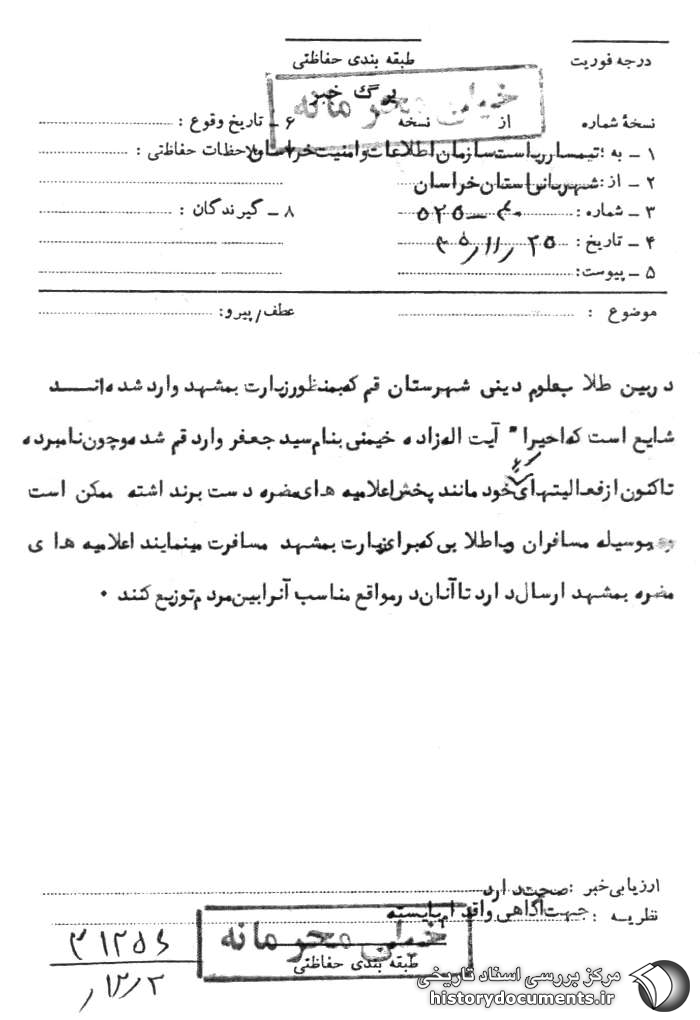 درجه فوریت
طبقه بندی حفاظتی
برگ خبر
خیلی محرمانه
نسخهٔ شماره از نسخه
۱ ـ به : تیمسار ریاست سازمان اطلاعات و امنیت خراسان
۲ ـ از : شهربانی استان خراسان
۳ ـ شماره :
۴ ـ تاریخ :
۵ ـ پیوست:
۶ ـ تاریخ وقوع :
ملاحظات حفاظتی :
۸ ـ گیرندگان :
موضوع :
عطف/پیرو:
دربین طلاب علوم دینی شهرستان قم که بمنظور زیارت بمشهد وارد شده اند
شایع است که اخیرا" آیت اله زاده خیمنی بنام سید جعفر وارد قم شده و چون نامبرده
تاکنون از فعالیتهای خود مانند پخش اعلامیه های مضره دست برنداشته ممکن است
بوسیله مسافران و یا طلابی که برای زیارت بمشهد مسافرت مینمایند اعلامیه های
مضره بمشهد ارسال دارد تا آنان در مواقع مناسب آنرا بین مردم توزیع کنند ۰
ارزیابی خبر : صحت دارد
نظریه : جهت آگاهی و اقدام بایسته
خیلی محرمانه
طبقه بندی حفاظتی
۳۱۲۵۶
۱۲/۲
مرکز بررسی اسناد تاریخی
historydocuments.ir